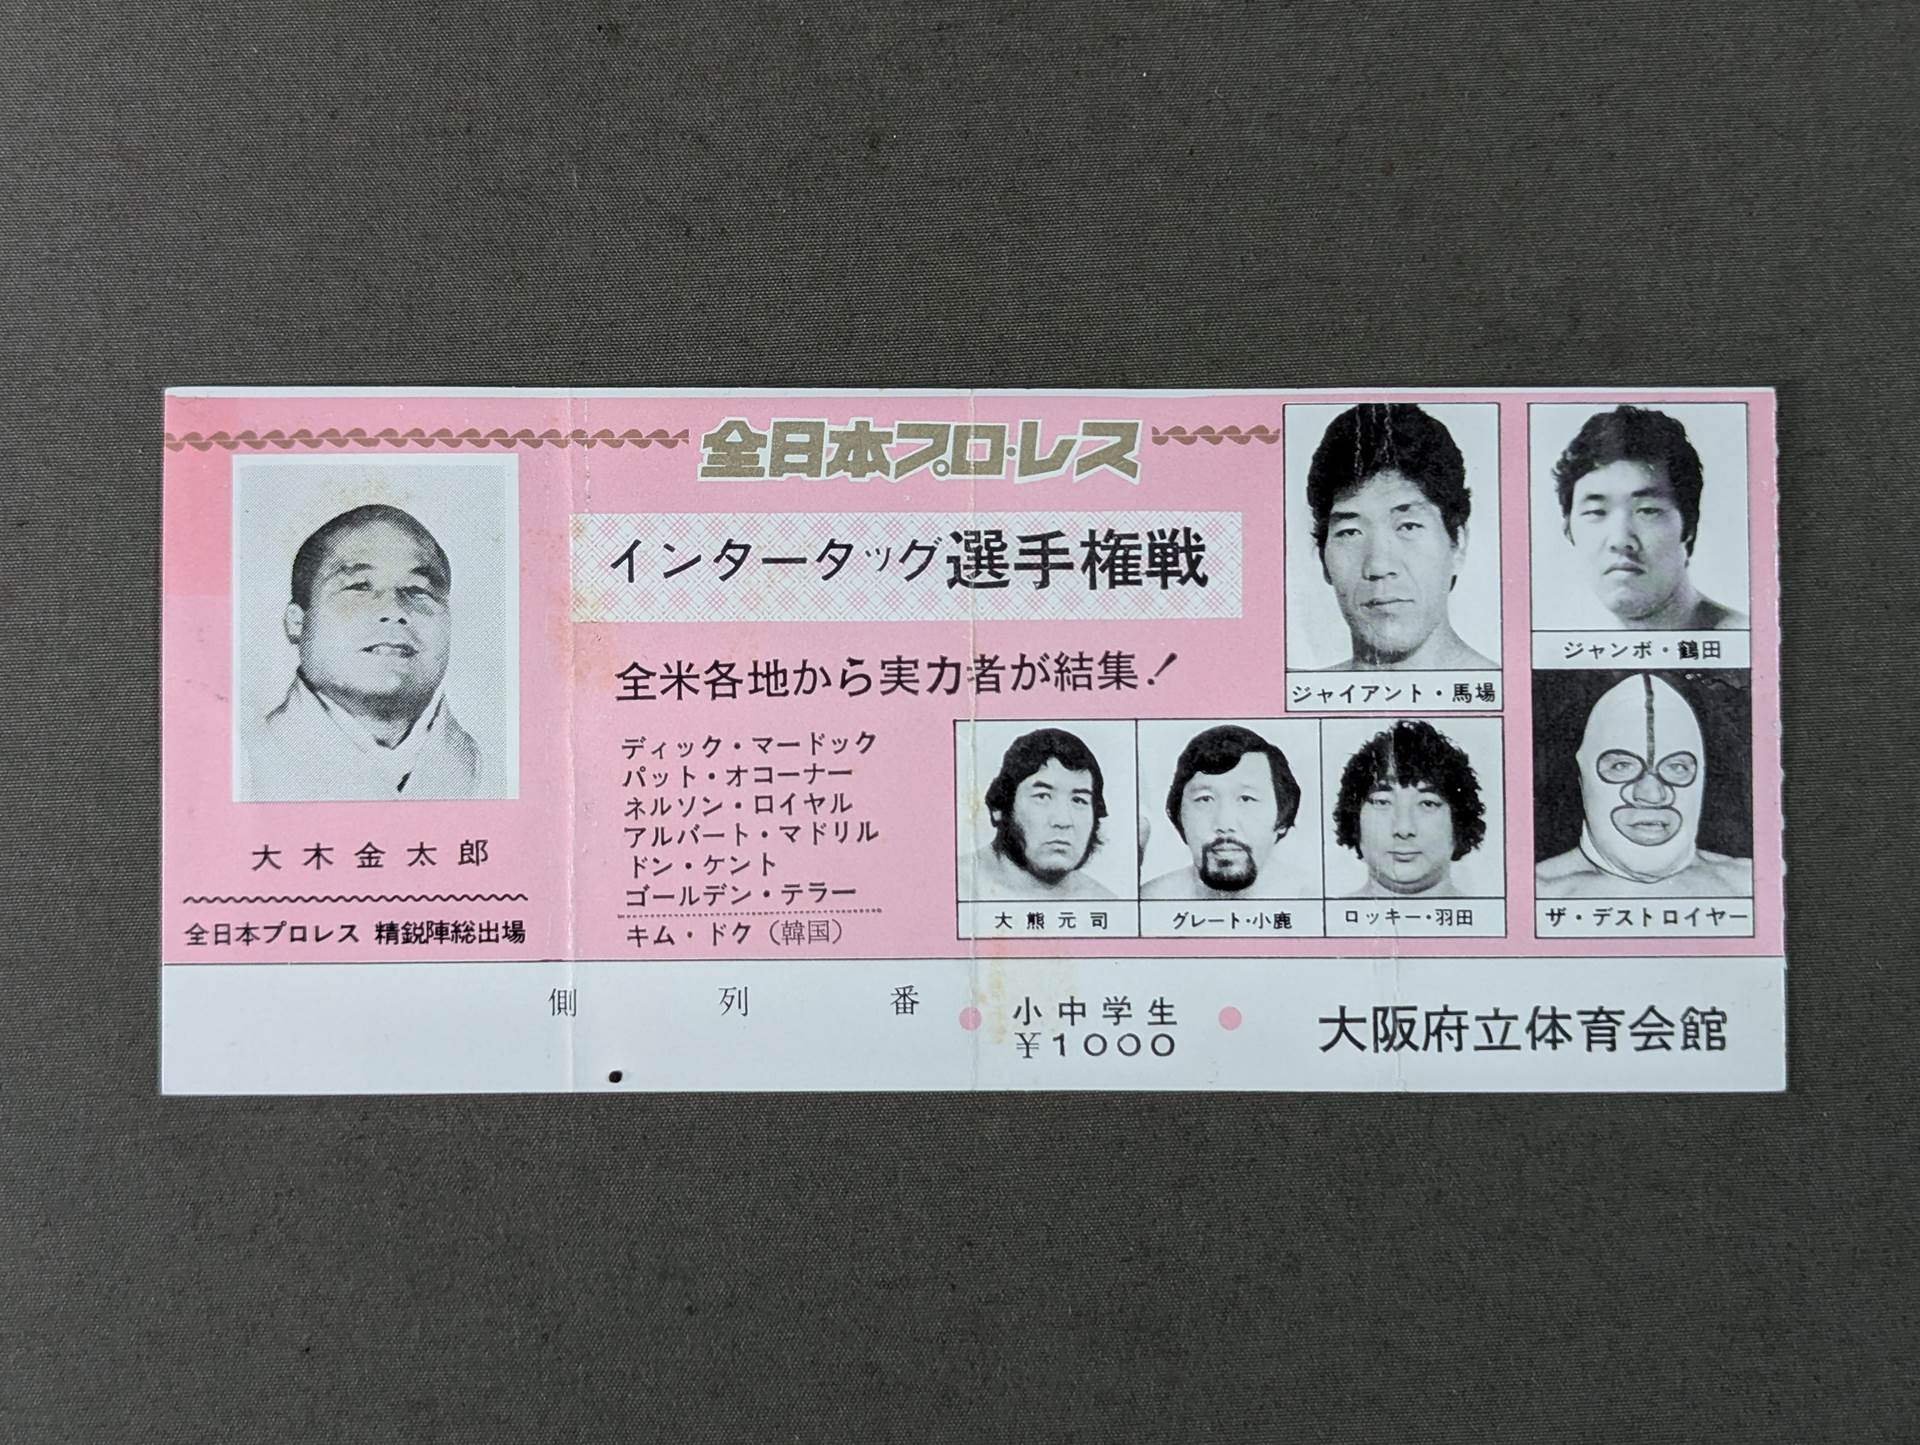 全日本プロ・レス
インタータッグ選手権戦
全米各地から実力者が結集！
ディック・マードック
パット・オコーナー
ネルソン・ロイヤル
アルバート・マドリル
ドン・ケント
ゴールデン・テラー
キム・ドク（韓国）
大木金太郎
全日本プロレス 精鋭陣総出場
ジャイアント・馬場
ジャンボ・鶴田
大熊元司
グレート・小鹿
ロッキー・羽田
ザ・デストロイヤー
側 列 番
小中学生
￥1000
大阪府立体育会館